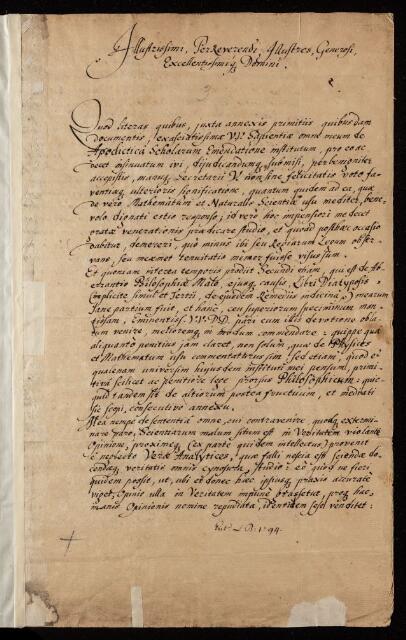 Illustrissimi, PerReverendi, Illustres, Generosi,
Excellentissimiq Domini.
Quod literas quibus, juxta annexis primitiis quibusdam
documentis, exasciatissimæ Sapientiæ omne meum de
Apodictica Scholarum Emendatione institutum, pro eo ac
decet insinuatum ivi, dijudicandumq submisi, perbenigniter
accepistis, manuq Secretarii V. non sine felicitatis voto fa-
ventiaq ulterioris significatione, quantum quidem ad ea, quæ
de vero Mathematum et Naturalis Scientiæ usu meditor, bene-
volo dignati estis responso; id vero hoc impensiori me decet
venerationis prædicare studio, et quoad posthac occasio
dabitur, demereri, quo minus ibi seu Regiarum Legum obser-
vans, seu meæmet tenuitatis memor fuisse visus sum.
Et quoniam interea temporis prodit Secundi mei, qui est de Ab-
errantis Philosophiæ Malo, ejusq causis, Libri Diatyposis
(implicite simul et Tertii, de ejusdem Remediis
partim fuit, et hanc, ceu superiorum speciminum
tissam, Eminentiss. VV. DD. pari cum illis devotione
venire, melioremq in modum commendare: quippe quæ
aliquanto penitius jam claret, non solum quæ de Physices
et Mathematum usu commentaturus sim sed etiam, quod et
quænam universim hujusdem instituti mei pensum, primi-
tiva scilicet ac penitiore lege prorsus Philosophicum: quo
quid tandem sit de altiorum postea fructuum, et meditati
sic spei, consecutivo annexu.
Mea nempe de sententia omne, cui contravenire quoq
paro, Scientiarum malum situm est in Veritatem violante
Opinione, proximeq (ea parte quidem intellectus) provenit
e neglecto Veræ Analytices, quæ falli nescia est sciendæ do-
cendæq veritatis omnis cynosura, studio: eo quod ne fieri
quidem possit, ut, ubi et donec hæc ipsiusq praxis accurate
viget, Opinio ulla in Veritatem impune grassetur,
manis Opinionis nomine repudiata, identidem sese venditet:
1794.